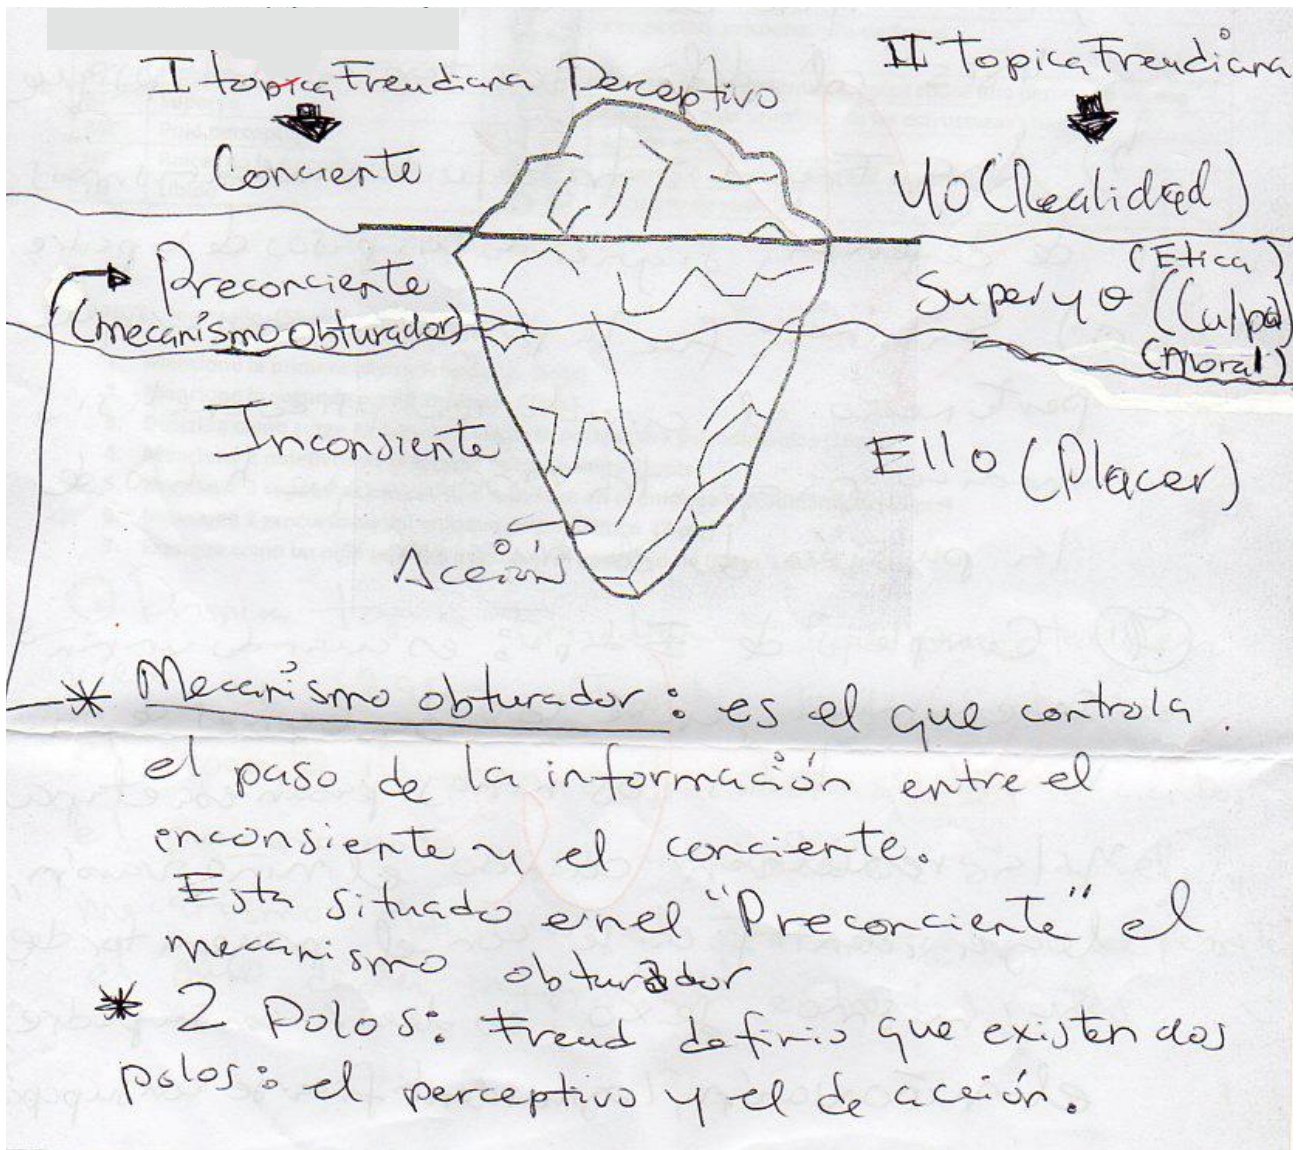 I topica Freudiana
Perceptivo
II Topica Freudiana
Conciente
Yo (Realidad)
Preconciente
(mecanismo obturador)
(Etica)
Superyo (Culpa)
(Moral)
Inconsiente
Ello (Placer)
Acción
* Mecanismo obturador: es el que controla
el paso de la información entre el
inconsiente y el conciente.
Esta situado en el "Preconciente" el
mecanismo obturador
* 2 Polos: Freud definio que existen dos
polos: el perceptivo y el de acción.